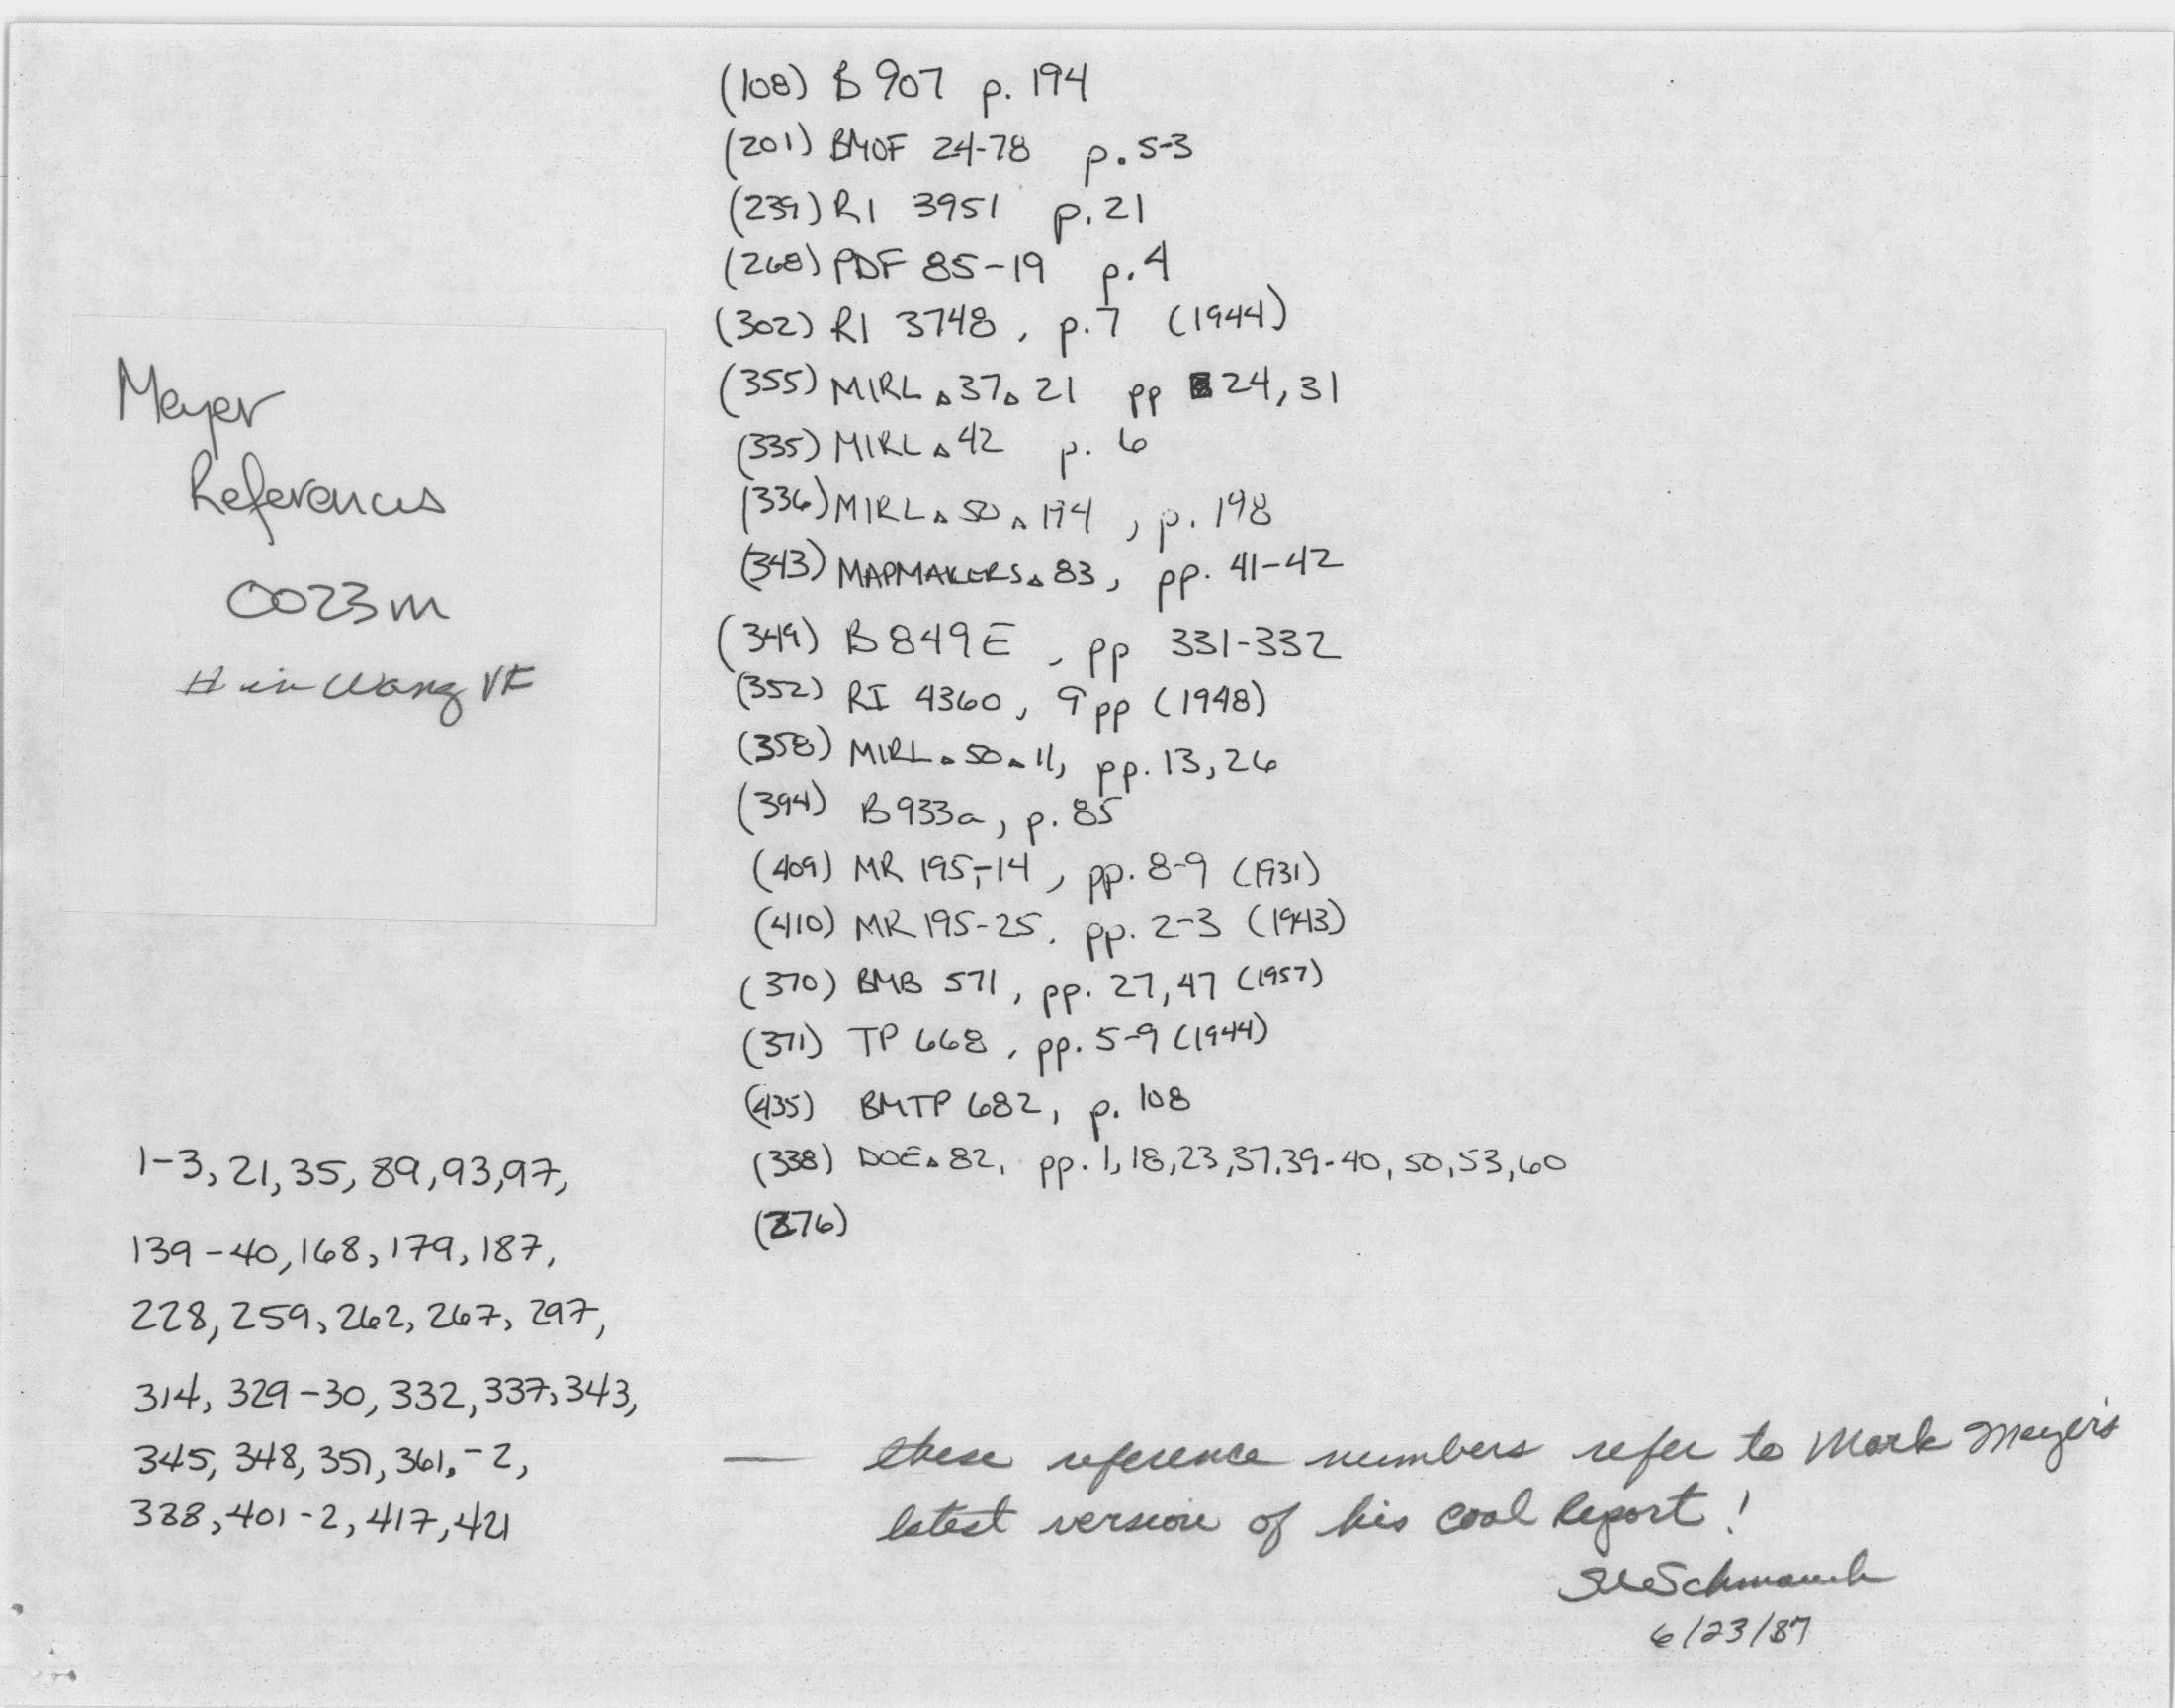 (108) B 907 p. 194
(201) BMOF 24-78 p. 5-3
(239) RI 3951 p. 21
(268) PDF 85-19 p. 4
(302) RI 3748, p. 7 (1944)
(355) MIRL ▵ 37 ▵ 21 pp 24, 31
(335) MIRL ▵ 42 p. 6
(336) MIRL ▵ 50 ▵ 194, p. 198
(343) MAPMAKERS ▵ 83, pp. 41-42
(349) B 849 E, pp 331-332
(352) RI 4360, 9 pp (1948)
(358) MIRL ▵ 50 ▵ 11, pp. 13, 26
(394) B 933a, p. 85
(409) MR 195-14, pp. 8-9 (1931)
(410) MR 195-25, pp. 2-3 (1943)
(370) BMB 571, pp. 27, 47 (1957)
(371) TP 668, pp. 5-9 (1944)
(435) BMTP 682, p. 108
(338) DOE ▵ 82, pp. 1, 18, 23, 37, 39-40, 50, 53, 60
(276)
Meyer
References
0023m
# in Wang VF
1-3, 21, 35, 89, 93, 97,
139-40, 168, 179, 187,
228, 259, 262, 267, 297,
314, 329-30, 332, 337, 343,
345, 348, 351, 361,-2,
388, 401-2, 417, 421
— these reference numbers refer to Mark Meyer's
latest version of his coal Report!
Schmauch
6/23/87